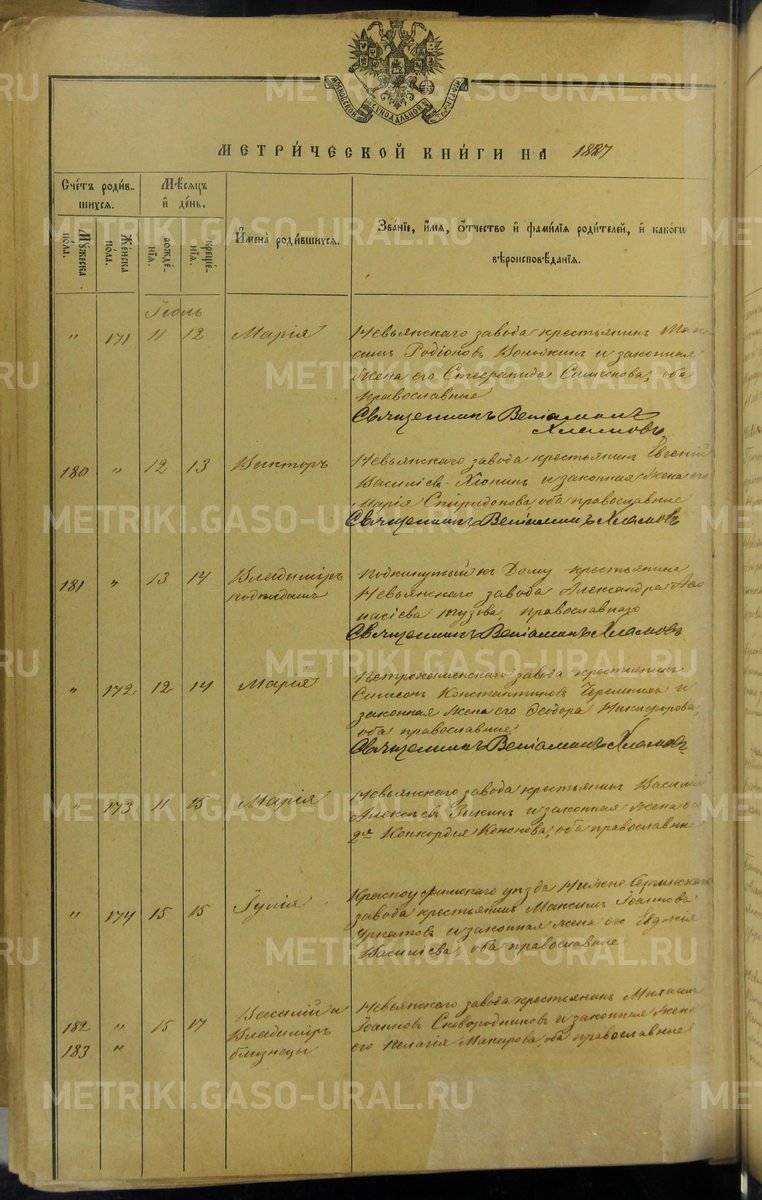 ИРКОВСКОЙ СѴНОДАЛЬНОЙ ТѴПОГРАФІИ
МЕТРИ́ЧЕСКОЙ КНИ́ГИ НА 1887
Сче́тъ роди́в-
шихся.
Мѣсяцъ
и҆ де́нь.
И҆мена̀ роди́вшихся.
Зва́нїе, и҆́мя, ѻ҆́тчество и҆ фами́лїя роди́телей, и҆ како́гѡ
вѣроисповѣ́данїя.
Мꙋ́жеска
по́ла.
Же́нска
по́ла.
рожде́-
нїѧ.
креще́-
нїѧ.
Іюль
" 171 11 12 Марія
Невьянскаго завода крестьянин Мак
сим Родіонов Володкин и законная
жена его Стефанида Симонова, оба
православные
Священникъ Веніаминъ
Хламовъ
180 " 12 13 Викторъ
Невьянскаго завода крестьянин Евгеній
Василіев Хіонин и законная жена его
Марія Спиридонова, оба православные
Священникъ Веніаминъ Хламовъ
181 " 13 14 Владиміръ
подкидыш
Подкинутый къ дому крестьянина
Невьянскаго завода Александра Афа
насіева Тузова, православнаго
Священникъ Веніаминъ Хламовъ
" 172 12 14 Марія
Петрокаменскаго завода крестьянин
Симеон Константинов Черемных и
законная жена его Феодора Никифорова,
оба православные
Священникъ Веніаминъ Хламовъ
" 173 11 15 Марія
Невьянскаго завода крестьянин Василій
Алексѣев Зыкин и законная жена его
Конкордія Кононова, оба православные
" 174 15 15 Іулія
Красноуфимскаго уѣзда Нижне Сергинскаго
завода крестьянин Максим Іоаннов
и законная жена его Евдокія
Василіева, оба православные
182 " 15 17 Василій и
183 " Владиміръ
близнецы
Невьянскаго завода крестьянин Михаил
Іоаннов Сковородников и законная жена
его Пелагія Макарова, оба православные
METRIKI.GASO-URAL.RU